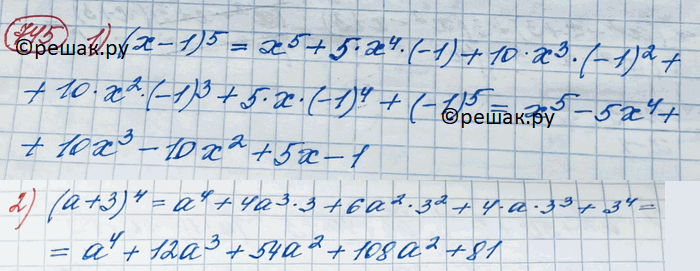 745 1) (x-1)⁵ = x⁵ + 5·x⁴·(-1) + 10·x³·(-1)² +
©решак.ру
+ 10·x²·(-1)³ + 5·x·(-1)⁴ + (-1)⁵ = x⁵ - 5x⁴ +
©решак.ру
+ 10x³ - 10x² + 5x - 1
2) (a+3)⁴ = a⁴ + 4a³·3 + 6a²·3² + 4·a·3³ + 3⁴ =
= a⁴ + 12a³ + 54a² + 108a² + 81